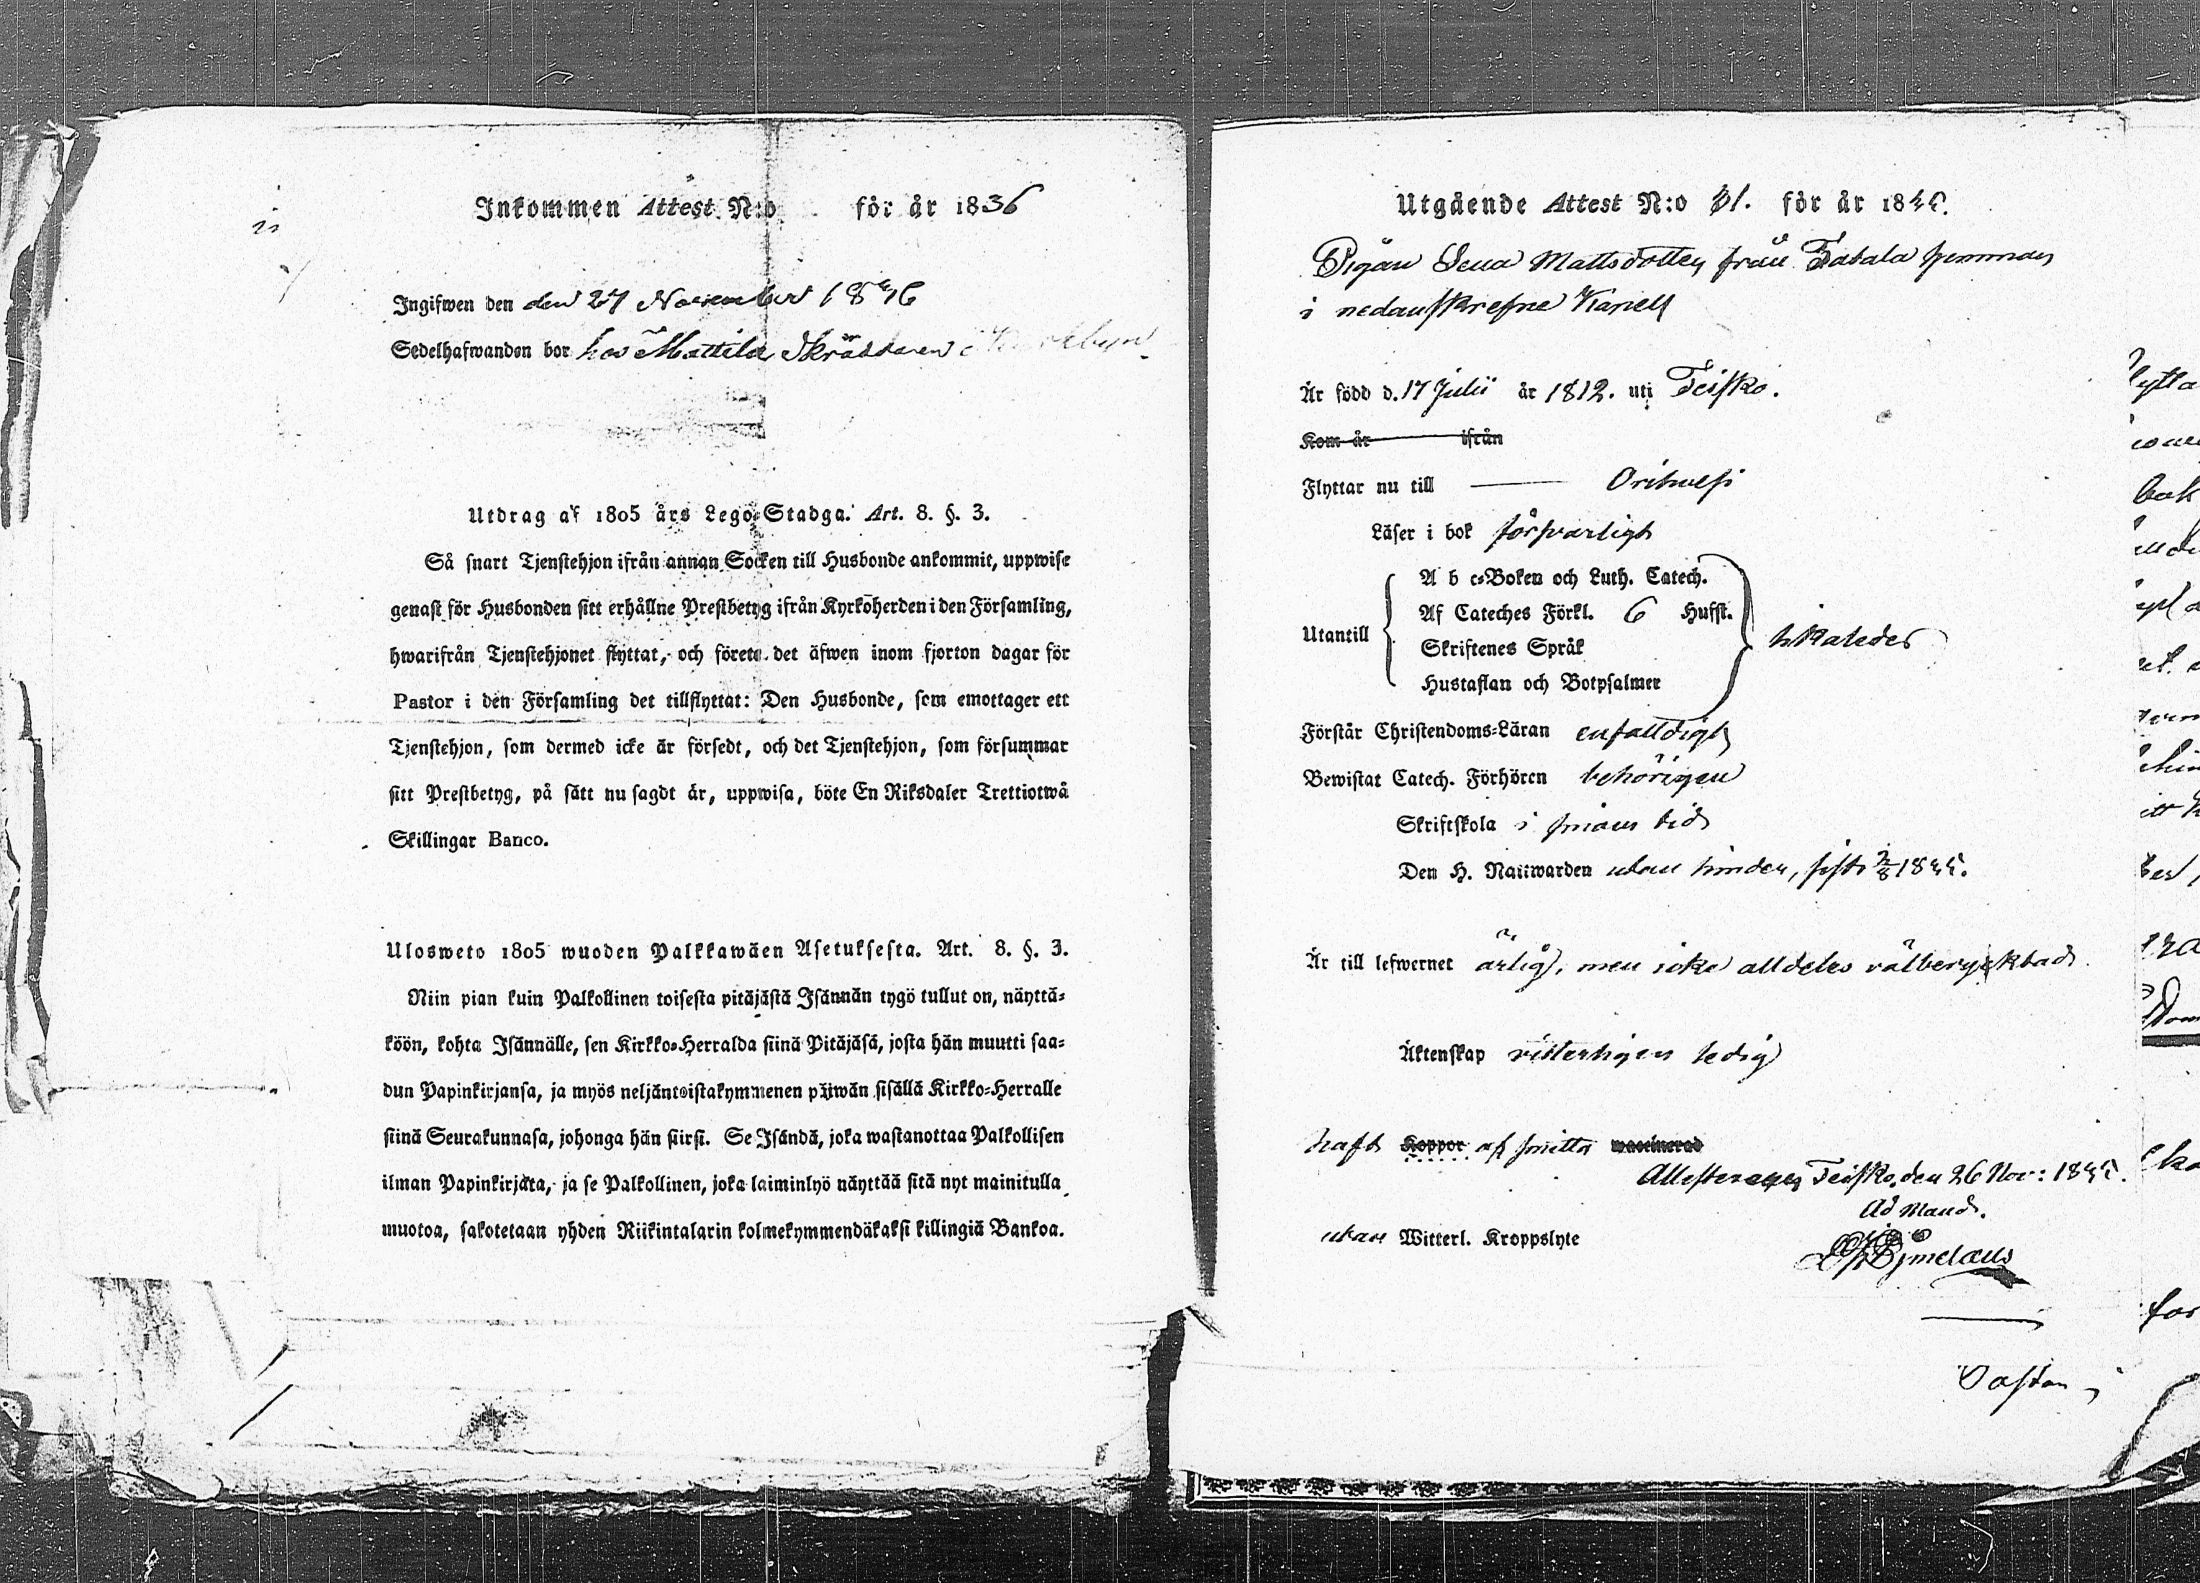 Inkommen Attest N:o för år 1836
Ingifwen den den 27 November 18
Sedelhafwanden bor hos Mattila Skräddaren i Kyrkobyn
Utdrag af 1805 års Lego-Stadga. Art. 8. §. 3.
Så snart Tjenstehjon ifrån annan Socken till Husbonde ankommit, uppwise
genast för Husbonden sitt erhållne Prestbetyg ifrån Kyrkoherden i den Församling,
hwarifrån Tjenstehjonet flyttat, och förete det äfwen inom fjorton dagar för
Pastor i den Församling det tillflyttat: Den Husbonde, som emottager ett
Tjenstehjon, som dermed icke är försedt, och det Tjenstehjon, som försummar
sitt Prestbetyg, på sätt nu sagdt är, uppwisa, böte En Riksdaler Trettiotwå
Skillingar Banco.
Ulosweto 1805 wuoden Palkkawäen Asetuksesta. Art. 8. §. 3.
Niin pian kuin Palkollinen toisesta pitäjästä Isännän tygö tullut on, näyttä-
köön, kohta Isännälle, sen Kirkko-Herralda siinä Pitäjäsä, josta hän muutti saa-
dun Papinkirjansa, ja myös neljäntoistakymmenen päiwän sisällä Kirkko-Herralle
siinä Seurakunnasa, johonga hän siirsi. Se Isändä, joka wastanottaa Palkollisen
ilman Papinkirjata, ja se Palkollinen, joka laiminlyö näyttää sitä nyt mainitulla
muotoa, sakotetaan yhden Riikintalarin kolmekymmendäkaksi killingiä Bankoa.
Utgående Attest N:o 31. för år 18
Pigan Lena Mattsdotter från Tabala hemman
i nedanskrefne Kapell
Är född d. 17 Julii år 1812. uti Teisko.
Kom år ifrån
Flyttar nu till Orihvesi
Läser i bok försvarligt
A b c-Boken och Luth. Catech.
Af Cateches Förkl. 6 Hufst.
Utantill
Skriftenes Språk
Hustaflan och Botpsalmer
Förstår Christendoms-Läran enfalldigt
Bewistat Catech. Förhören behörigen
Skriftskola i sinom tid
Den H. Nattwarden utan hinder, sist
Är till lefwernet ärlig, men icke alldeles välberycktad
Äktenskap vitterligen ledig
haft Koppor af smitta waccinerad
Attesterager Teisko, den 26 Nov: 18
Ad Mand.
utan Witterl. Kroppslyte